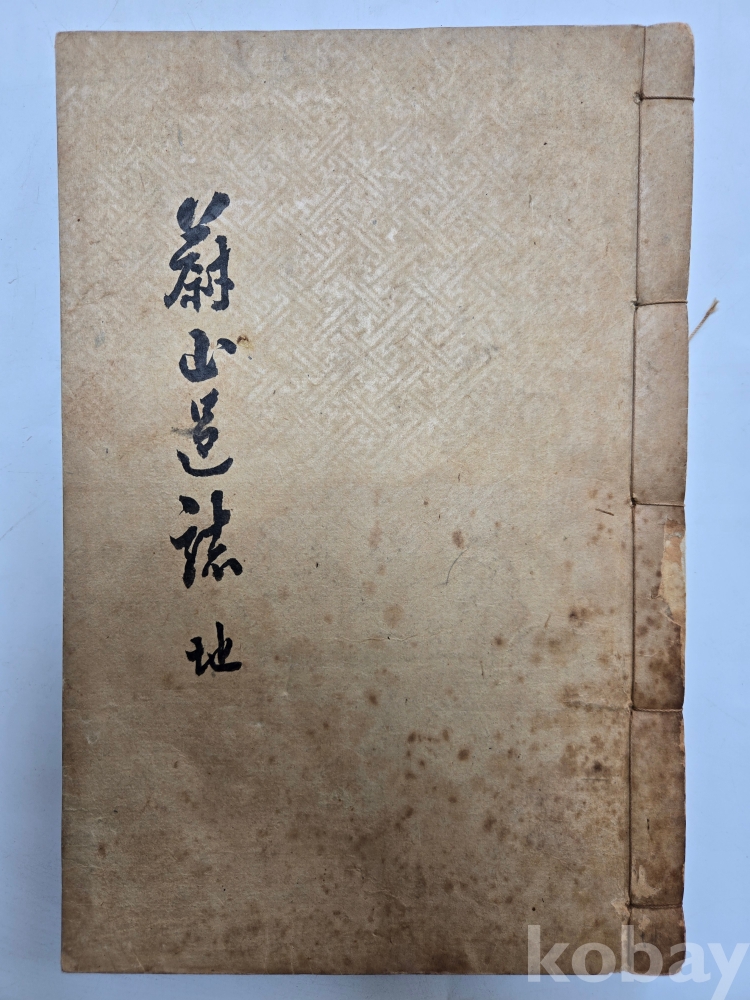 蔚山邑誌 地
kobay